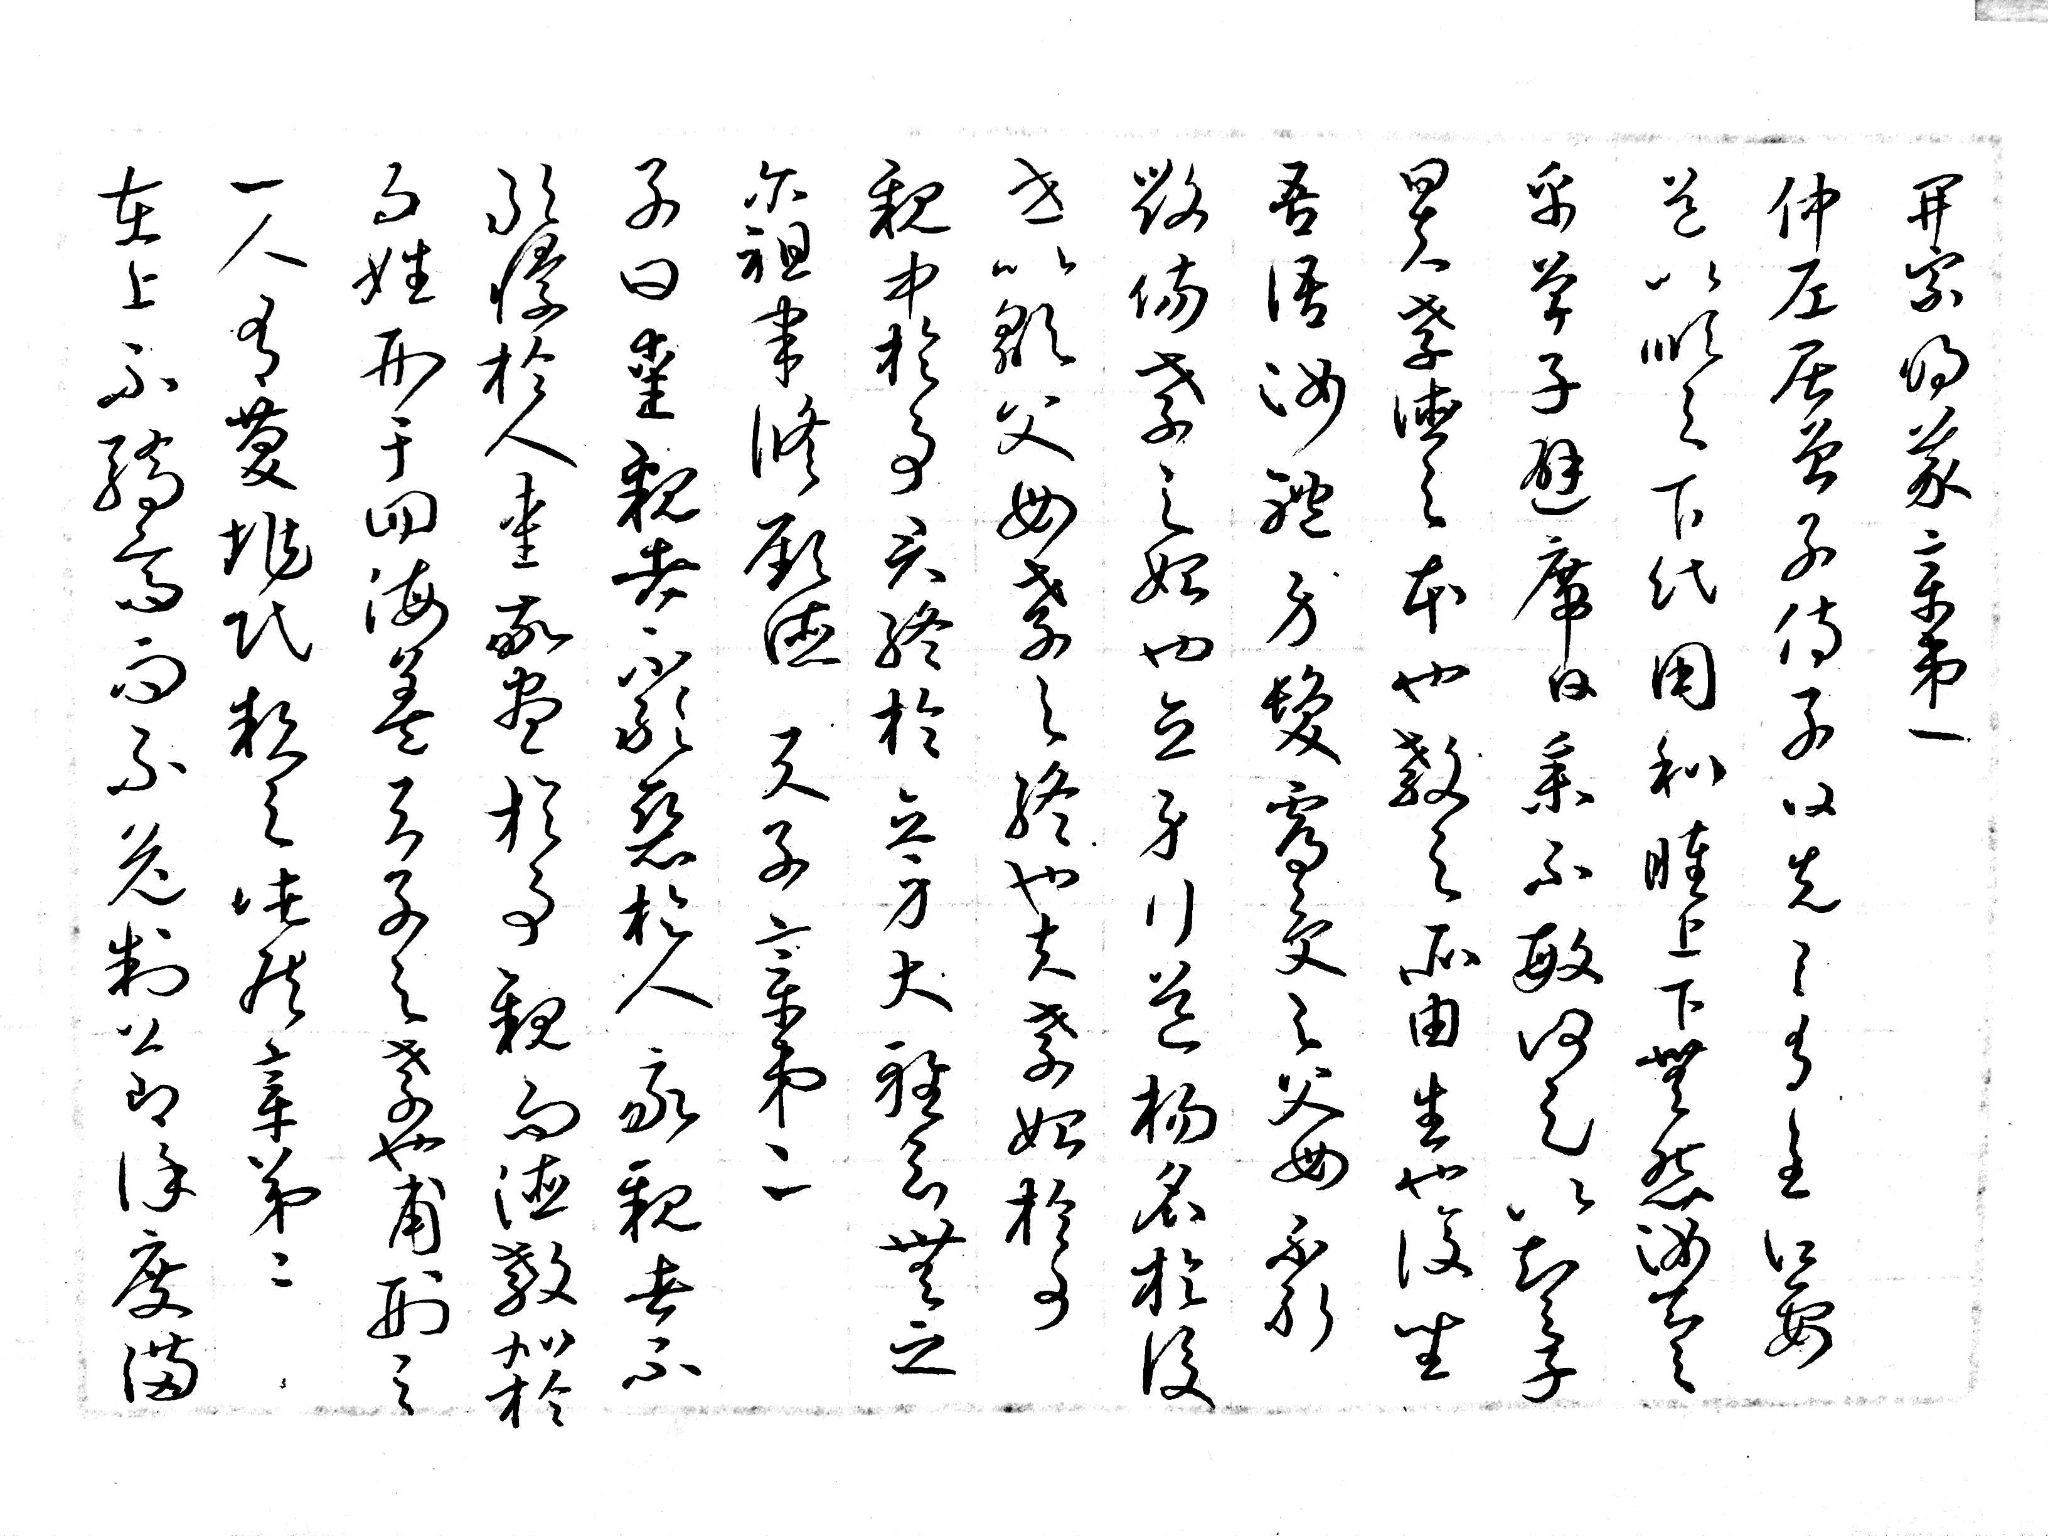 開宗明義章第一
仲尼居曾子侍子曰先王有至德要
道以順天下民用和睦上下無怨汝知之
乎曾子避席曰參不敏何足以知之子
曰夫孝德之本也教之所由生也復坐
吾語汝體身髮膚受之父母不敢
毀傷孝之始也立身行道揚名於後
世以顯父母孝之終也夫孝始於事
親中於事君終於立身大雅云無念
爾祖聿脩厥德 天子章第二
子曰愛親者不敢惡於人敬親者不
敢慢於人愛敬盡於事親而德教加於
百姓刑于四海蓋天子之孝也甫刑云
一人有慶兆民賴之諸侯章第三
在上不驕高而不危制節謹度滿